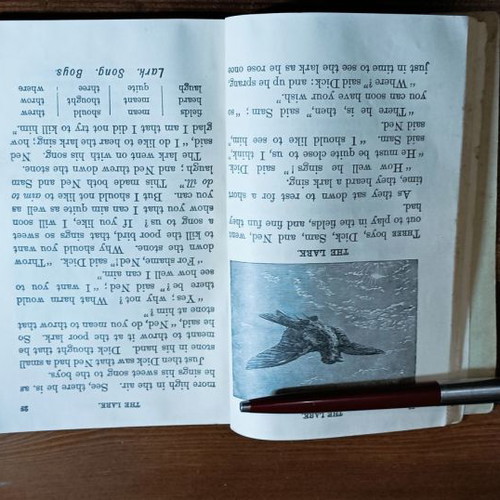 THE LARK
THE LARK.
THREE boys, Dick, Sam, and Ned, went
out to play in the fields, and fine fun they
had.
As they sat down to rest for a short
time, they heard a lark sing.
"How well he sings!" said Dick.
"He must be quite close to us, I think,"
said Sam. "I should like to see him,"
said Ned.
"There he is, then," said Sam; "so
you can soon have your wish."
"Where?" said Dick; and up he sprang,
just in time to see the lark as he rose once
THE LARK. 29
more high in the air. See, there he is, as
he sings his sweet song to the boys.
Just then Dick saw that Ned had a small
stone in his hand. Dick thought that he
meant to throw it at the poor lark. So
he said, "Ned, do you mean to throw that
stone at him?"
"Yes; why not? What harm would
there be?" said Ned; "I want you to
see how well I can aim."
"For shame, Ned!" said Dick. "Throw
down the stone. Why should you want
to kill the poor bird, that sings so sweet
a song to us? If you like, I will soon
show you that I can aim quite as well as
you can. But I should not like to aim to
do ill." This made both Ned and Sam
laugh; and Ned threw down the stone.
The lark went on with his song. Ned
said, "I do like to hear the lark sing; how
glad I am that I did not try to kill him."
fields mean should threw
heard meant thought throw
laugh quite three where
Lark. Song. Boys.